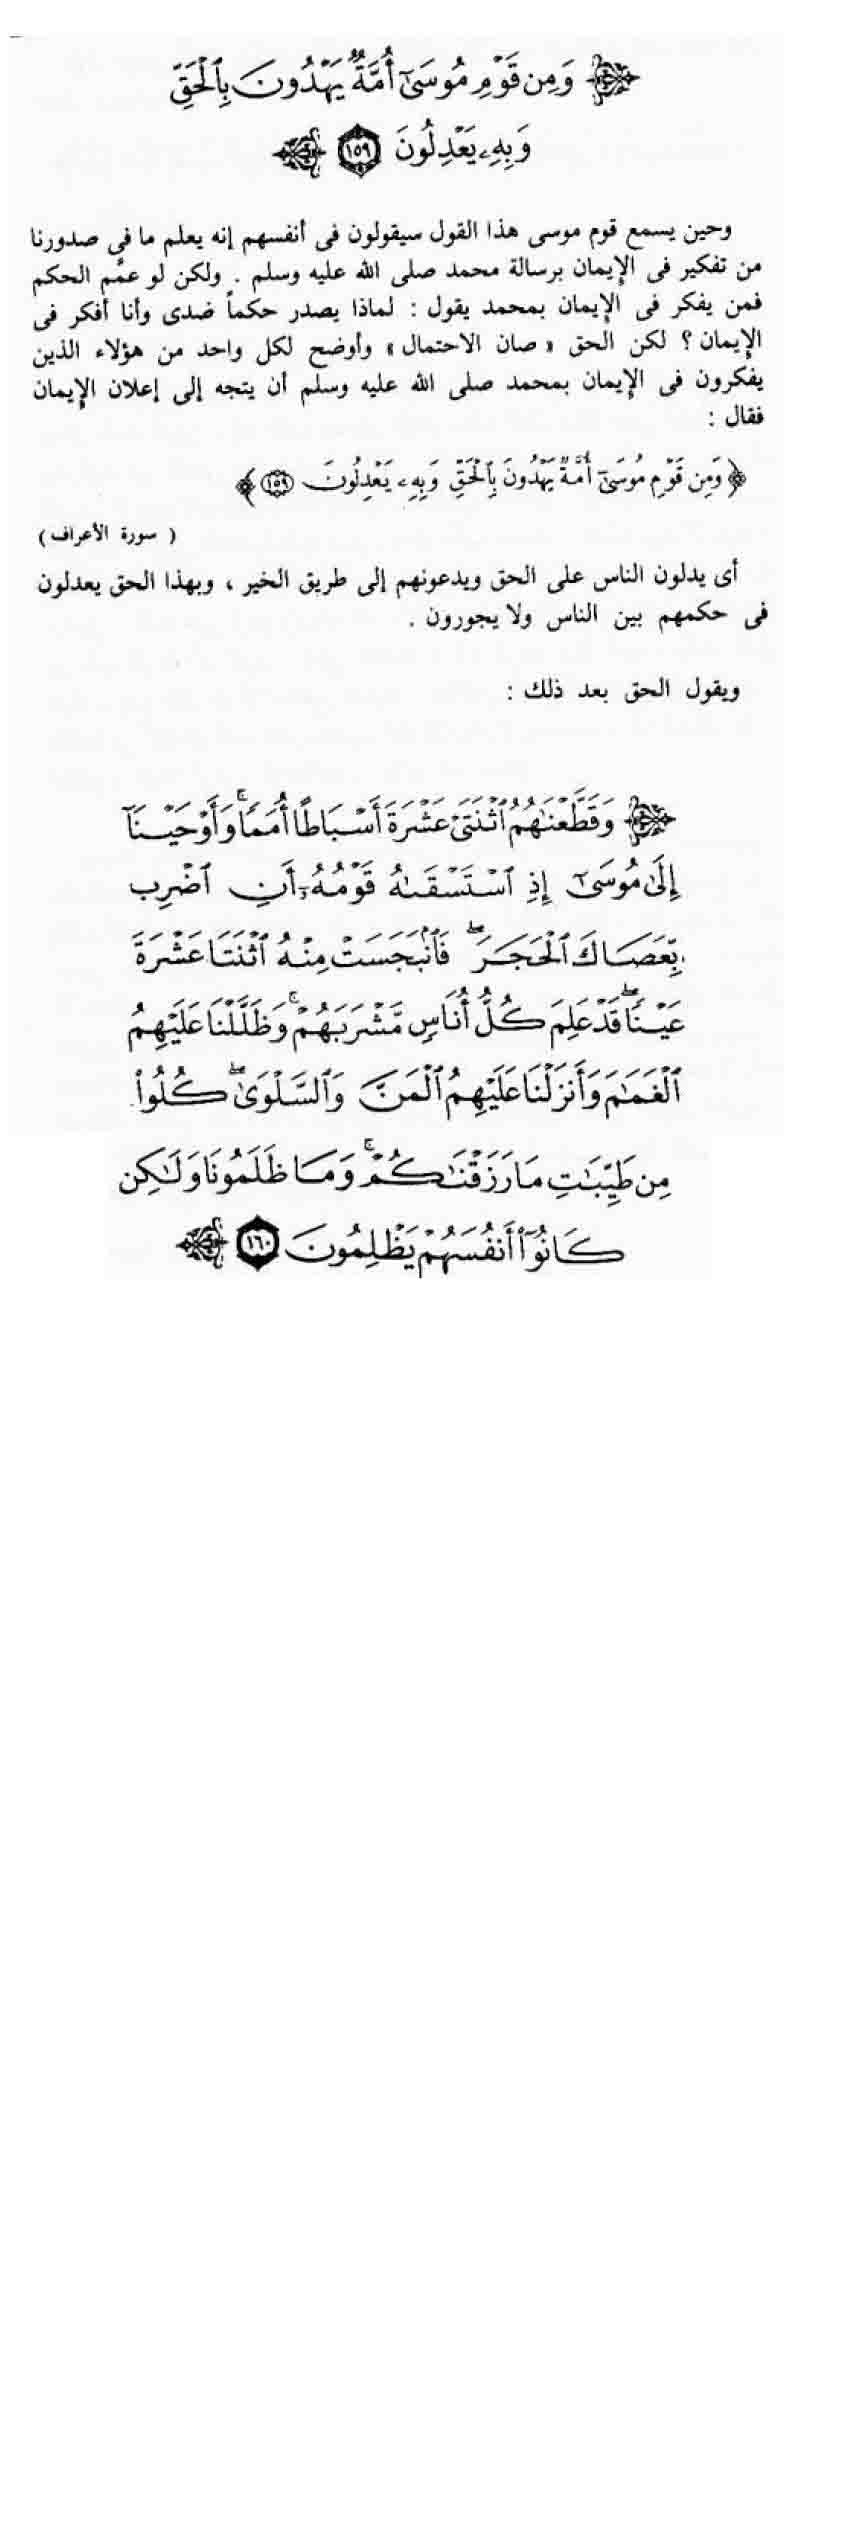 وَمِن قَوْمِ مُوسَىٰٓ أُمَّةٌ يَهْدُونَ بِٱلْحَقِّ
وَبِهِۦ يَعْدِلُونَ ١٥٩
وحين يسمع قوم موسى هذا القول سيقولون فى أنفسهم إنه يعلم ما فى صدورنا
من تفكير فى الإيمان برسالة محمد صلى الله عليه وسلم . ولكن لو عمَّم الحكم
فمن يفكر فى الإيمان بمحمد يقول : لماذا يصدر حكماً ضدى وأنا أفكر فى
الإيمان ؟ لكن الحق « صان الاحتمال » وأوضح لكل واحد من هؤلاء الذين
يفكرون فى الإيمان بمحمد صلى الله عليه وسلم أن يتجه إلى إعلان الإيمان
فقال :
﴿ وَمِن قَوْمِ مُوسَىٰٓ أُمَّةٌ يَهْدُونَ بِٱلْحَقِّ وَبِهِۦ يَعْدِلُونَ ١٥٩ ﴾
( سورة الأعراف )
أى يدلون الناس على الحق ويدعونهم إلى طريق الخير ، وبهذا الحق يعدلون
فى حكمهم بين الناس ولا يجورون .
ويقول الحق بعد ذلك :
وَقَطَّعْنَٰهُمُ ٱثْنَتَىْ عَشْرَةَ أَسْبَاطًا أُمَمًا ۚ وَأَوْحَيْنَآ
إِلَىٰ مُوسَىٰٓ إِذِ ٱسْتَسْقَىٰهُ قَوْمُهُۥٓ أَنِ ٱضْرِب
بِّعَصَاكَ ٱلْحَجَرَ ۖ فَٱنۢبَجَسَتْ مِنْهُ ٱثْنَتَا عَشْرَةَ
عَيْنًا ۖ قَدْ عَلِمَ كُلُّ أُنَاسٍ مَّشْرَبَهُمْ ۚ وَظَلَّلْنَا عَلَيْهِمُ
ٱلْغَمَٰمَ وَأَنزَلْنَا عَلَيْهِمُ ٱلْمَنَّ وَٱلسَّلْوَىٰ ۖ كُلُوا۟
مِن طَيِّبَٰتِ مَا رَزَقْنَٰكُمْ ۚ وَمَا ظَلَمُونَا وَلَٰكِن
كَانُوٓا۟ أَنفُسَهُمْ يَظْلِمُونَ ١٦٠